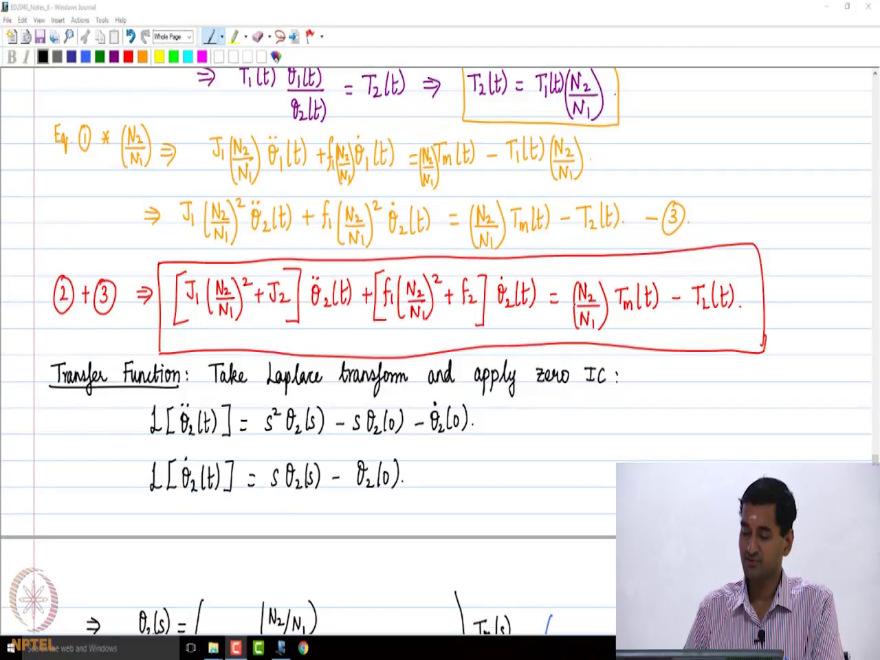 ED2040_Notes_8 - Windows Journal
File Edit View Insert Actions Tools Help
Whole Page
B I
⇒ T₁(t) θ₁(t)/θ₂(t) = T₂(t) ⇒ T₂(t) = T₁(t)(N₂/N₁).
Eq. ① * (N₂/N₁) ⇒ J₁(N₂/N₁) θ̈₁(t) + f₁(N₂/N₁) θ̇₁(t) = (N₂/N₁) Tm(t) − T₁(t)(N₂/N₁).
⇒ J₁(N₂/N₁)² θ̈₂(t) + f₁(N₂/N₁)² θ̇₂(t) = (N₂/N₁) Tm(t) − T₂(t). − ③.
② + ③ ⇒ [J₁(N₂/N₁)² + J₂] θ̈₂(t) + [f₁(N₂/N₁)² + f₂] θ̇₂(t) = (N₂/N₁) Tm(t) − TL(t).
Transfer Function: Take Laplace transform and apply zero IC:
L[θ̈₂(t)] = s²θ₂(s) − sθ₂(0) − θ̇₂(0).
L[θ̇₂(t)] = sθ₂(s) − θ₂(0).
⇒ θ₂(s) = ( (N₂/N₁) ) Tm(s)
NPTEL
the web and Windows